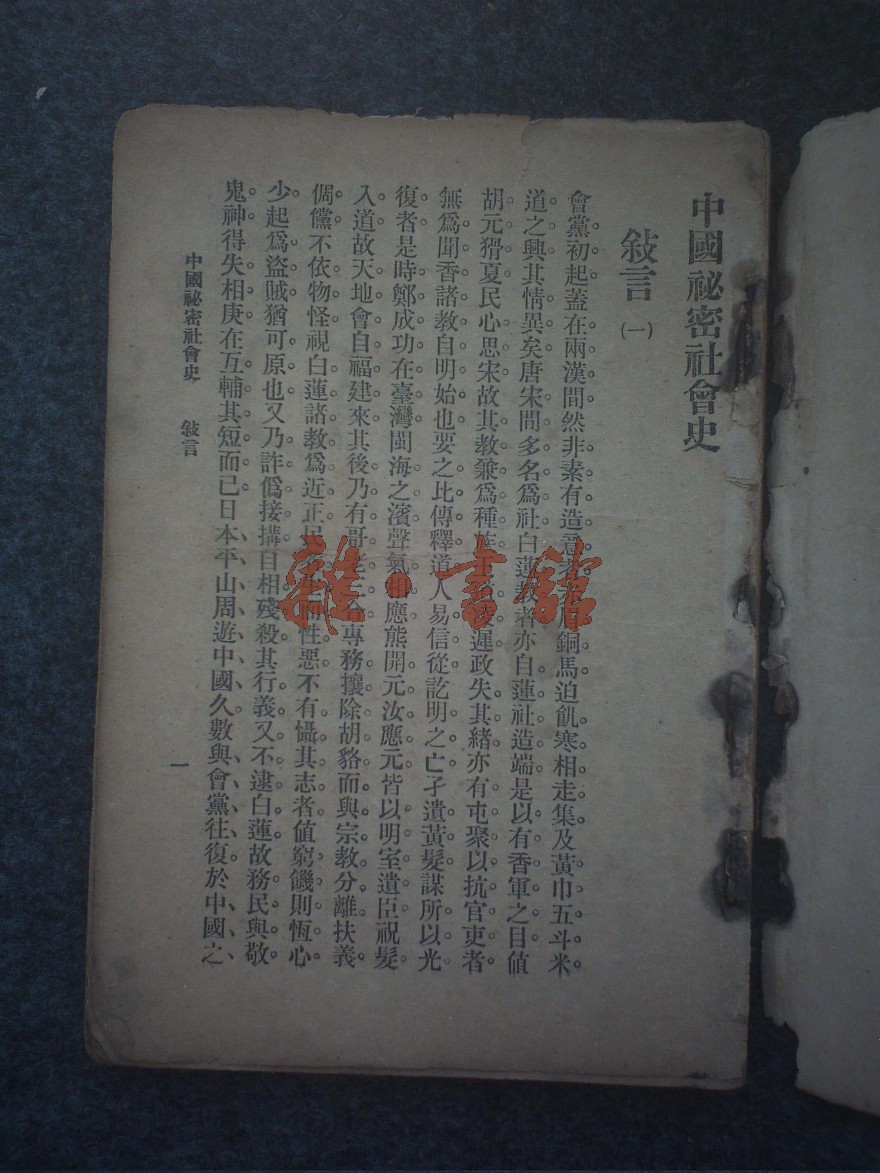 中國祕密社會史
敍言 (一)
會黨初起蓋在兩漢間然非素有造意銅馬迫飢寒相走集及黃巾五斗米
道之興其情異矣唐宋間多名爲社白蓮教者亦自蓮社造端是以有香軍之目値
胡元猾夏民心思宋故其教兼爲種遲政失其緒亦有屯聚以抗官吏者
無爲聞香諸教自明始也要之比傅釋道人易信從訖明之亡孑遺黃髮謀所以光
復者是時鄭成功在臺灣閩海之濱聲氣相應熊開元汝應元皆以明室遺臣祝髮
入道故天地會自福建來其後乃有哥老專務攘除胡貉而與宗教分離扶義
倜儻不依物怪視白蓮諸教爲近正民性惡不有懾其志者値窮饑則恆心
少起爲盜賊猶可原也又乃詐僞接搆自相殘殺其行義又不逮白蓮故務民與敬
鬼神得失相庚在互輔其短而已日本平山周遊中國久數與會黨往復於中國之
中國祕密社會史 敍言
一
雜·書館